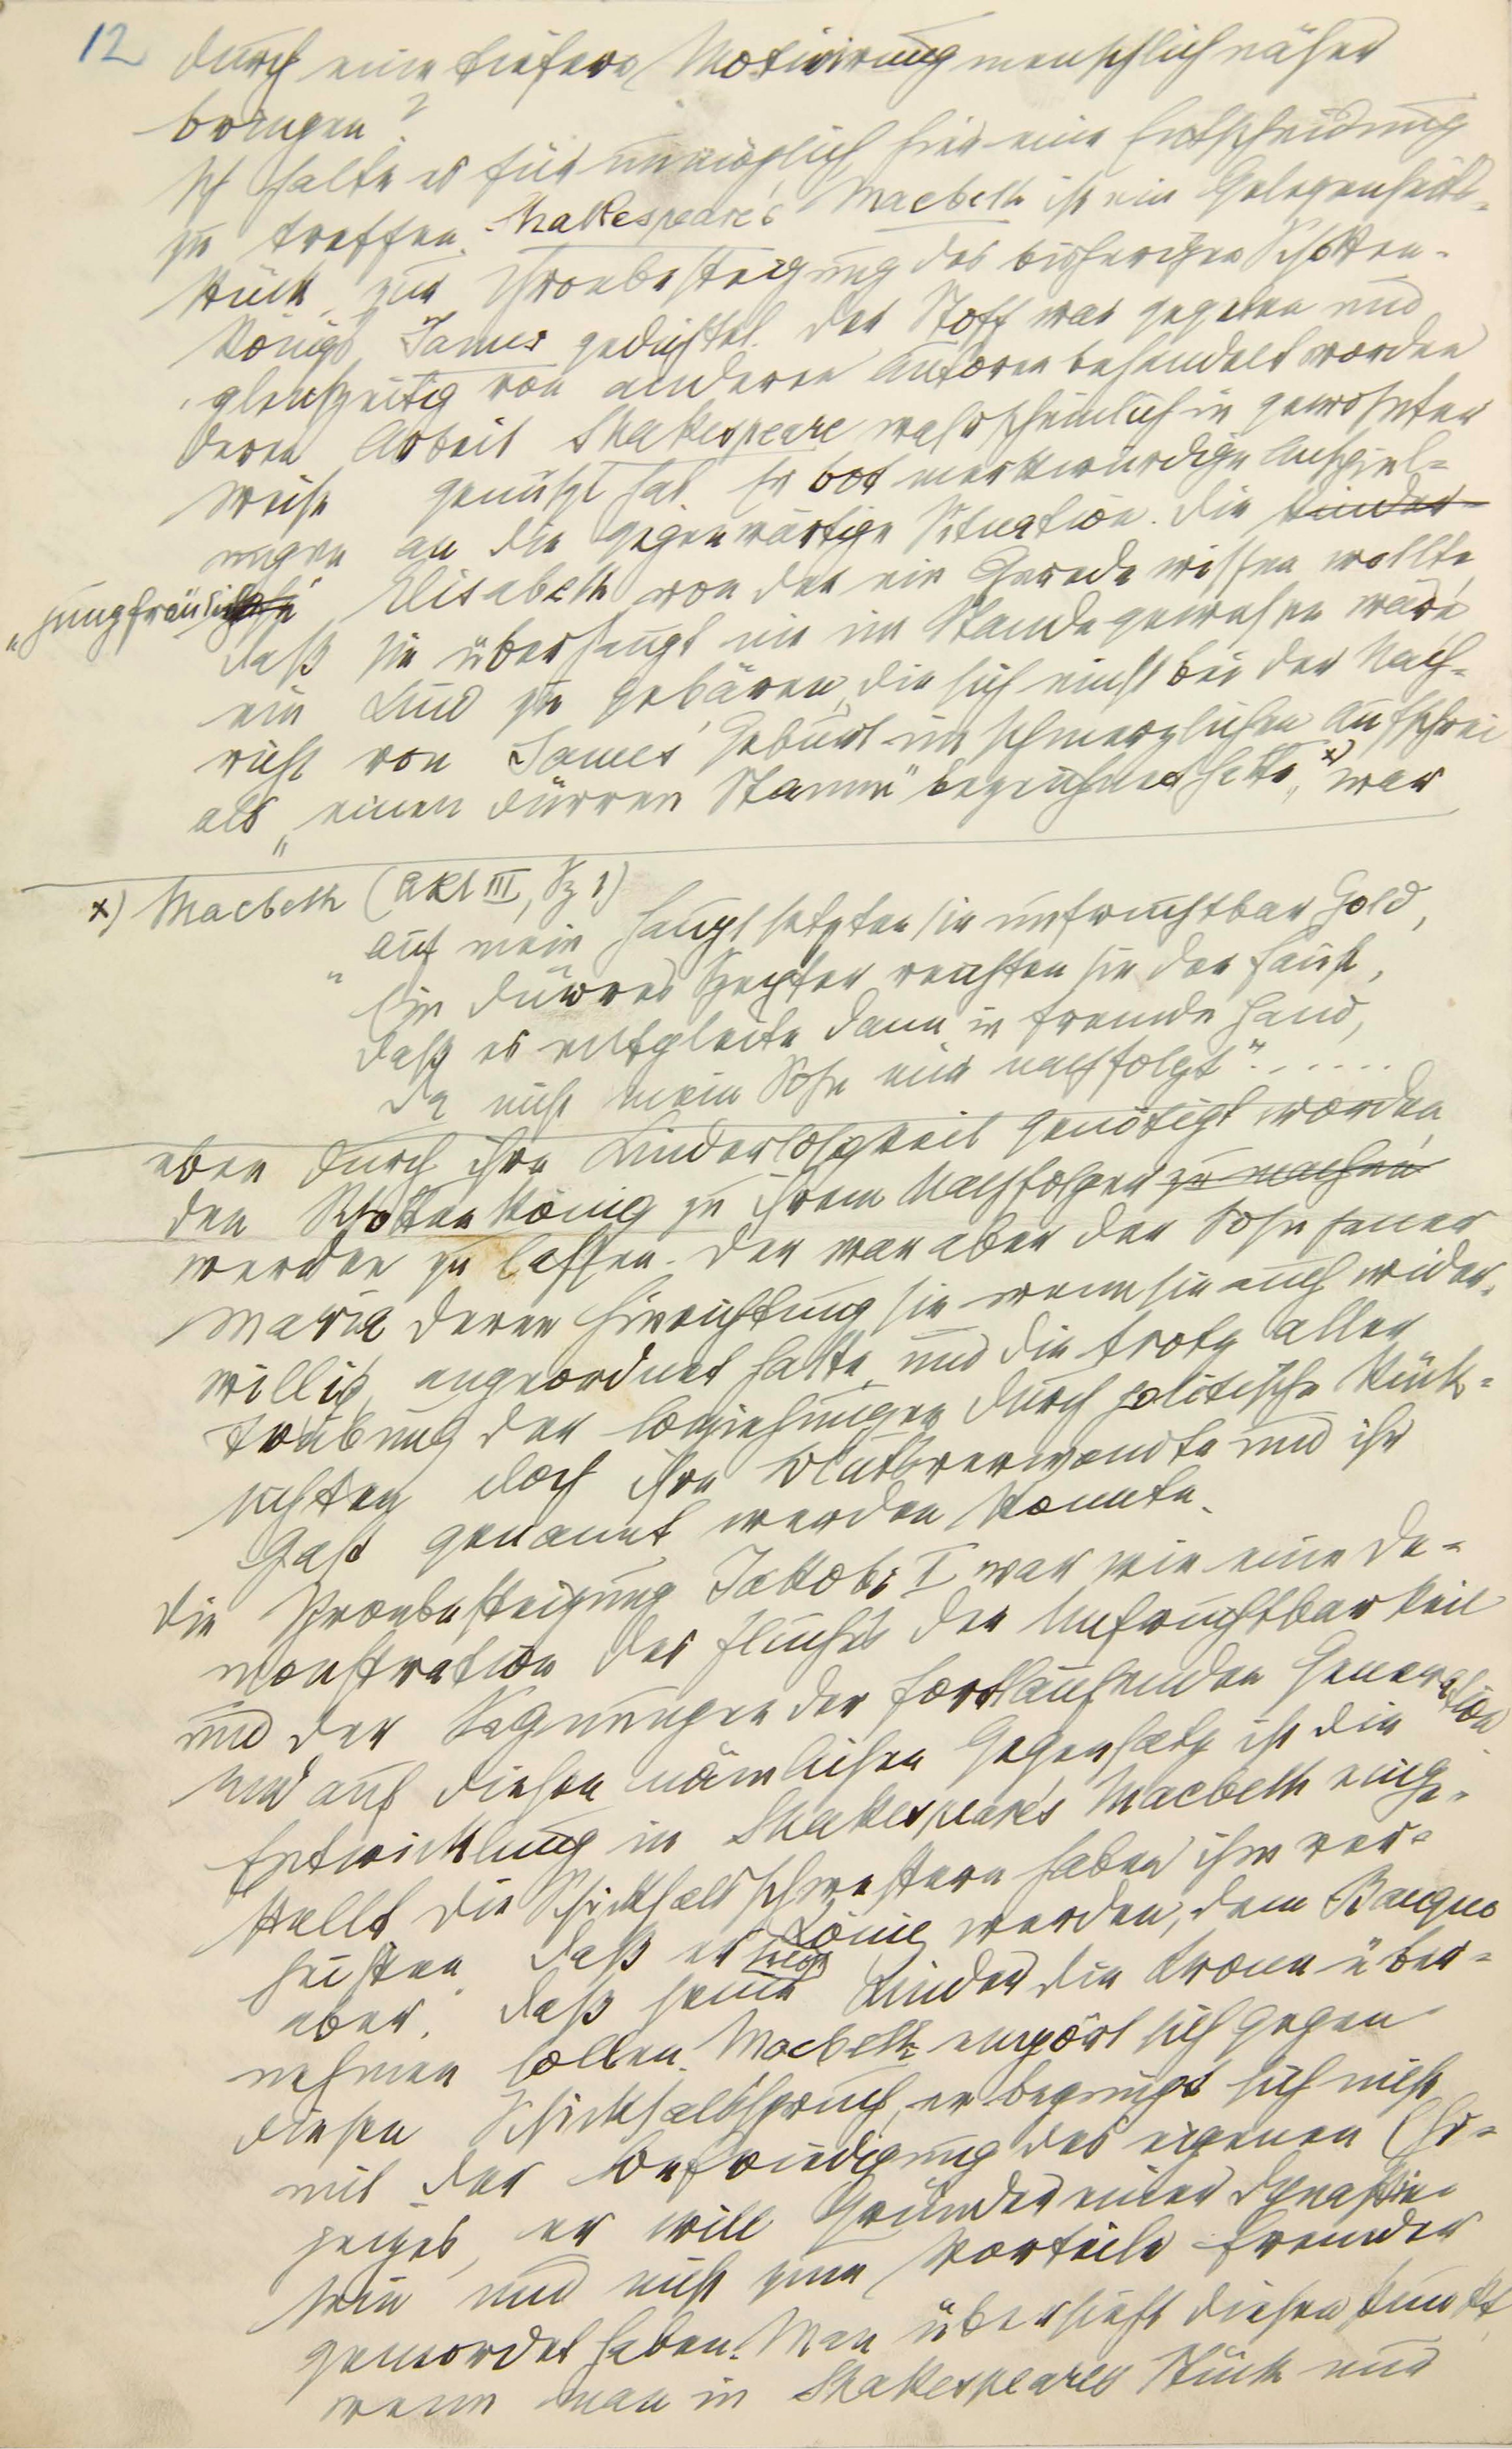 12
durch eine tiefere Motivirung menschlich näher
bringen?
Ich halte es für unmöglich hier eine Entscheidung
zu treffen. Shakespeare's Macbeth ist ein Gelegenheits-
stück, zur Thronbesteigung des bisherigen Schotten-
königs James gedichtet. Der Stoff war gegeben und
gleichzeitig von anderen Autoren behandelt worden
deren Arbeit Shakespeare wahrscheinlich in gewohnter
Weise genützt hat. Er bot merkwürdige Anspiel-
ungen an die gegenwärtige Situation. Die kinder-
„jungfräuliche“ Elisabeth, von der ein Gerede wissen wollte,
daß sie überhaupt nie im Stande gewesen wäre
ein Kind zu gebären, die sich einst bei der Nach-
richt von James' Geburt im schmerzlichen Aufschrei
als „einen dürren Stamm“ bezeichnet hatte, x) war
x) Macbeth (Akt III, Sz 1)
„Auf mein Haupt setzten sie unfruchtbar Gold,
Ein dürres Szepter reichten sie der Faust,
Daß es entgleite dann in fremde Hand,
Da nicht mein Sohn mir nachfolgt“......
eben durch ihre Kinderlosigkeit genötigt worden,
den Schottenkönig zu ihrem Nachfolger zu machen
werden zu lassen. Der war aber der Sohn jener
Maria deren Hinrichtung sie wenn sie auch wider-
willig, angeordnet hatte, und die trotz aller
Trübung der Beziehungen durch politische Rück-
sichten doch ihre Blutsverwandte und ihr
Gast genannt werden konnte.
Die Thronbesteigung Jakobs I war wie eine De-
monstration des Fluches der Unfruchtbarkeit
und der Segnungen der fortlaufenden Generation
Und auf diesen nämlichen Gegensatz ist die
Entwicklung in Shakespeare's Macbeth einge-
stellt. Die Schicksalsschwestern haben ihm ver-
heißen, daß er König werden, dem Banquo
aber, daß seine Kinder die Krone über-
nehmen sollen. Macbeth empört sich gegen
diesen Schicksalsspruch, er begnügt sich nicht
mit der Befriedigung des eigenen Ehr-
geizes, er will Gründer einer Dynastie
sein und nicht zum Vorteile Fremder
gemordet haben. Man übersieht diesen Punkt,
wenn man in Shakespeares Stück nur